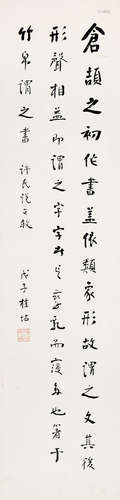 倉頡之初作書蓋依類象形故謂之文其後
形聲相益即謂之字字者言孳乳而寖多也箸于
竹帛謂之書 許氏說文敘
戊子桂